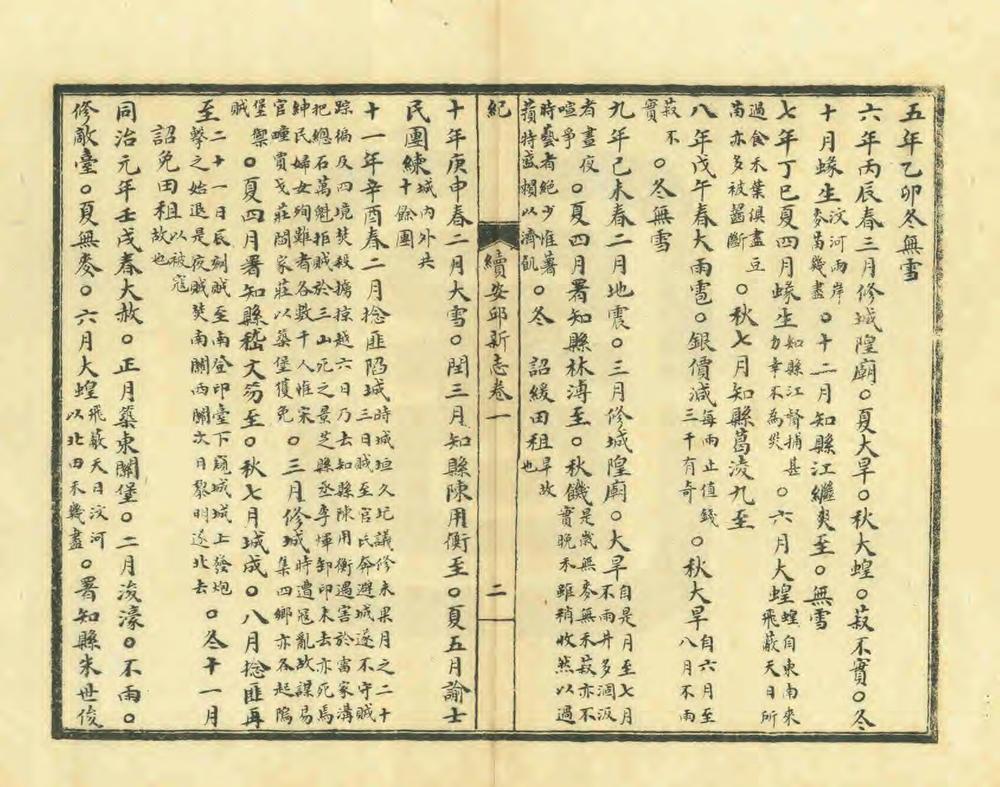 五年乙卯冬無雪
六年丙辰春三月修城隍廟○夏大旱○秋大蝗○菽不實○冬
十月蝝生汶河兩岸麥苗幾盡○十二月知縣江繼爽至○無雪
七年丁巳夏四月蝝生知縣江督捕甚力幸不為災○六月大蝗蝗自東南來飛蔽天日所
過食禾葉俱盡豆苗亦多被齧斷○秋七月知縣葛淩九至
八年戊午春大雨雹○銀價減每兩止值錢三千有奇○秋大旱自六月至八月不雨
菽不實○冬無雪
九年己未春二月地震○三月修城隍廟○大旱自是月至七月不雨井多涸汲
者晝夜喧爭○夏四月署知縣林溥至○秋饑是歲無麥無禾菽亦不實晚禾雖稍收然以過
時蓺者絕少惟薯蕷特盛賴以濟飢○冬 詔緩田租旱故也
紀 續安邱新志卷一 二
十年庚申春二月大雪○閏三月知縣陳用衡至○夏五月諭士
民團練城內外共十餘團
十一年辛酉春二月捻匪陷城時城垣久圮議修未果月之二十三日賊至官民奔避城遂不守賊
踪徧及四境焚殺擄掠越六日乃去知縣陳用衡遇害於富家溝把總石萬魁拒賊於三山死之景芝縣丞李惲卸印未去亦死焉
紳民婦女殉難者各數千人惟宋官疃賈戈莊閻家莊以築堡獲免○三月修城時遭寇亂故謀易集四鄉亦各起隖
堡禦賊○夏四月署知縣嵇文笏至○秋七月城成○八月捻匪再
至二十一日辰刻賊至南登印臺下窺城城上發炮擊之始退是夜賊焚南關西關次日黎明遂北去○冬十一月
詔免田租以被寇故也
同治元年壬戌春大赦○正月築東關堡○二月浚濠○不雨○
修敵臺○夏無麥○六月大蝗飛蔽天日汶河以北田禾幾盡○署知縣朱世俊